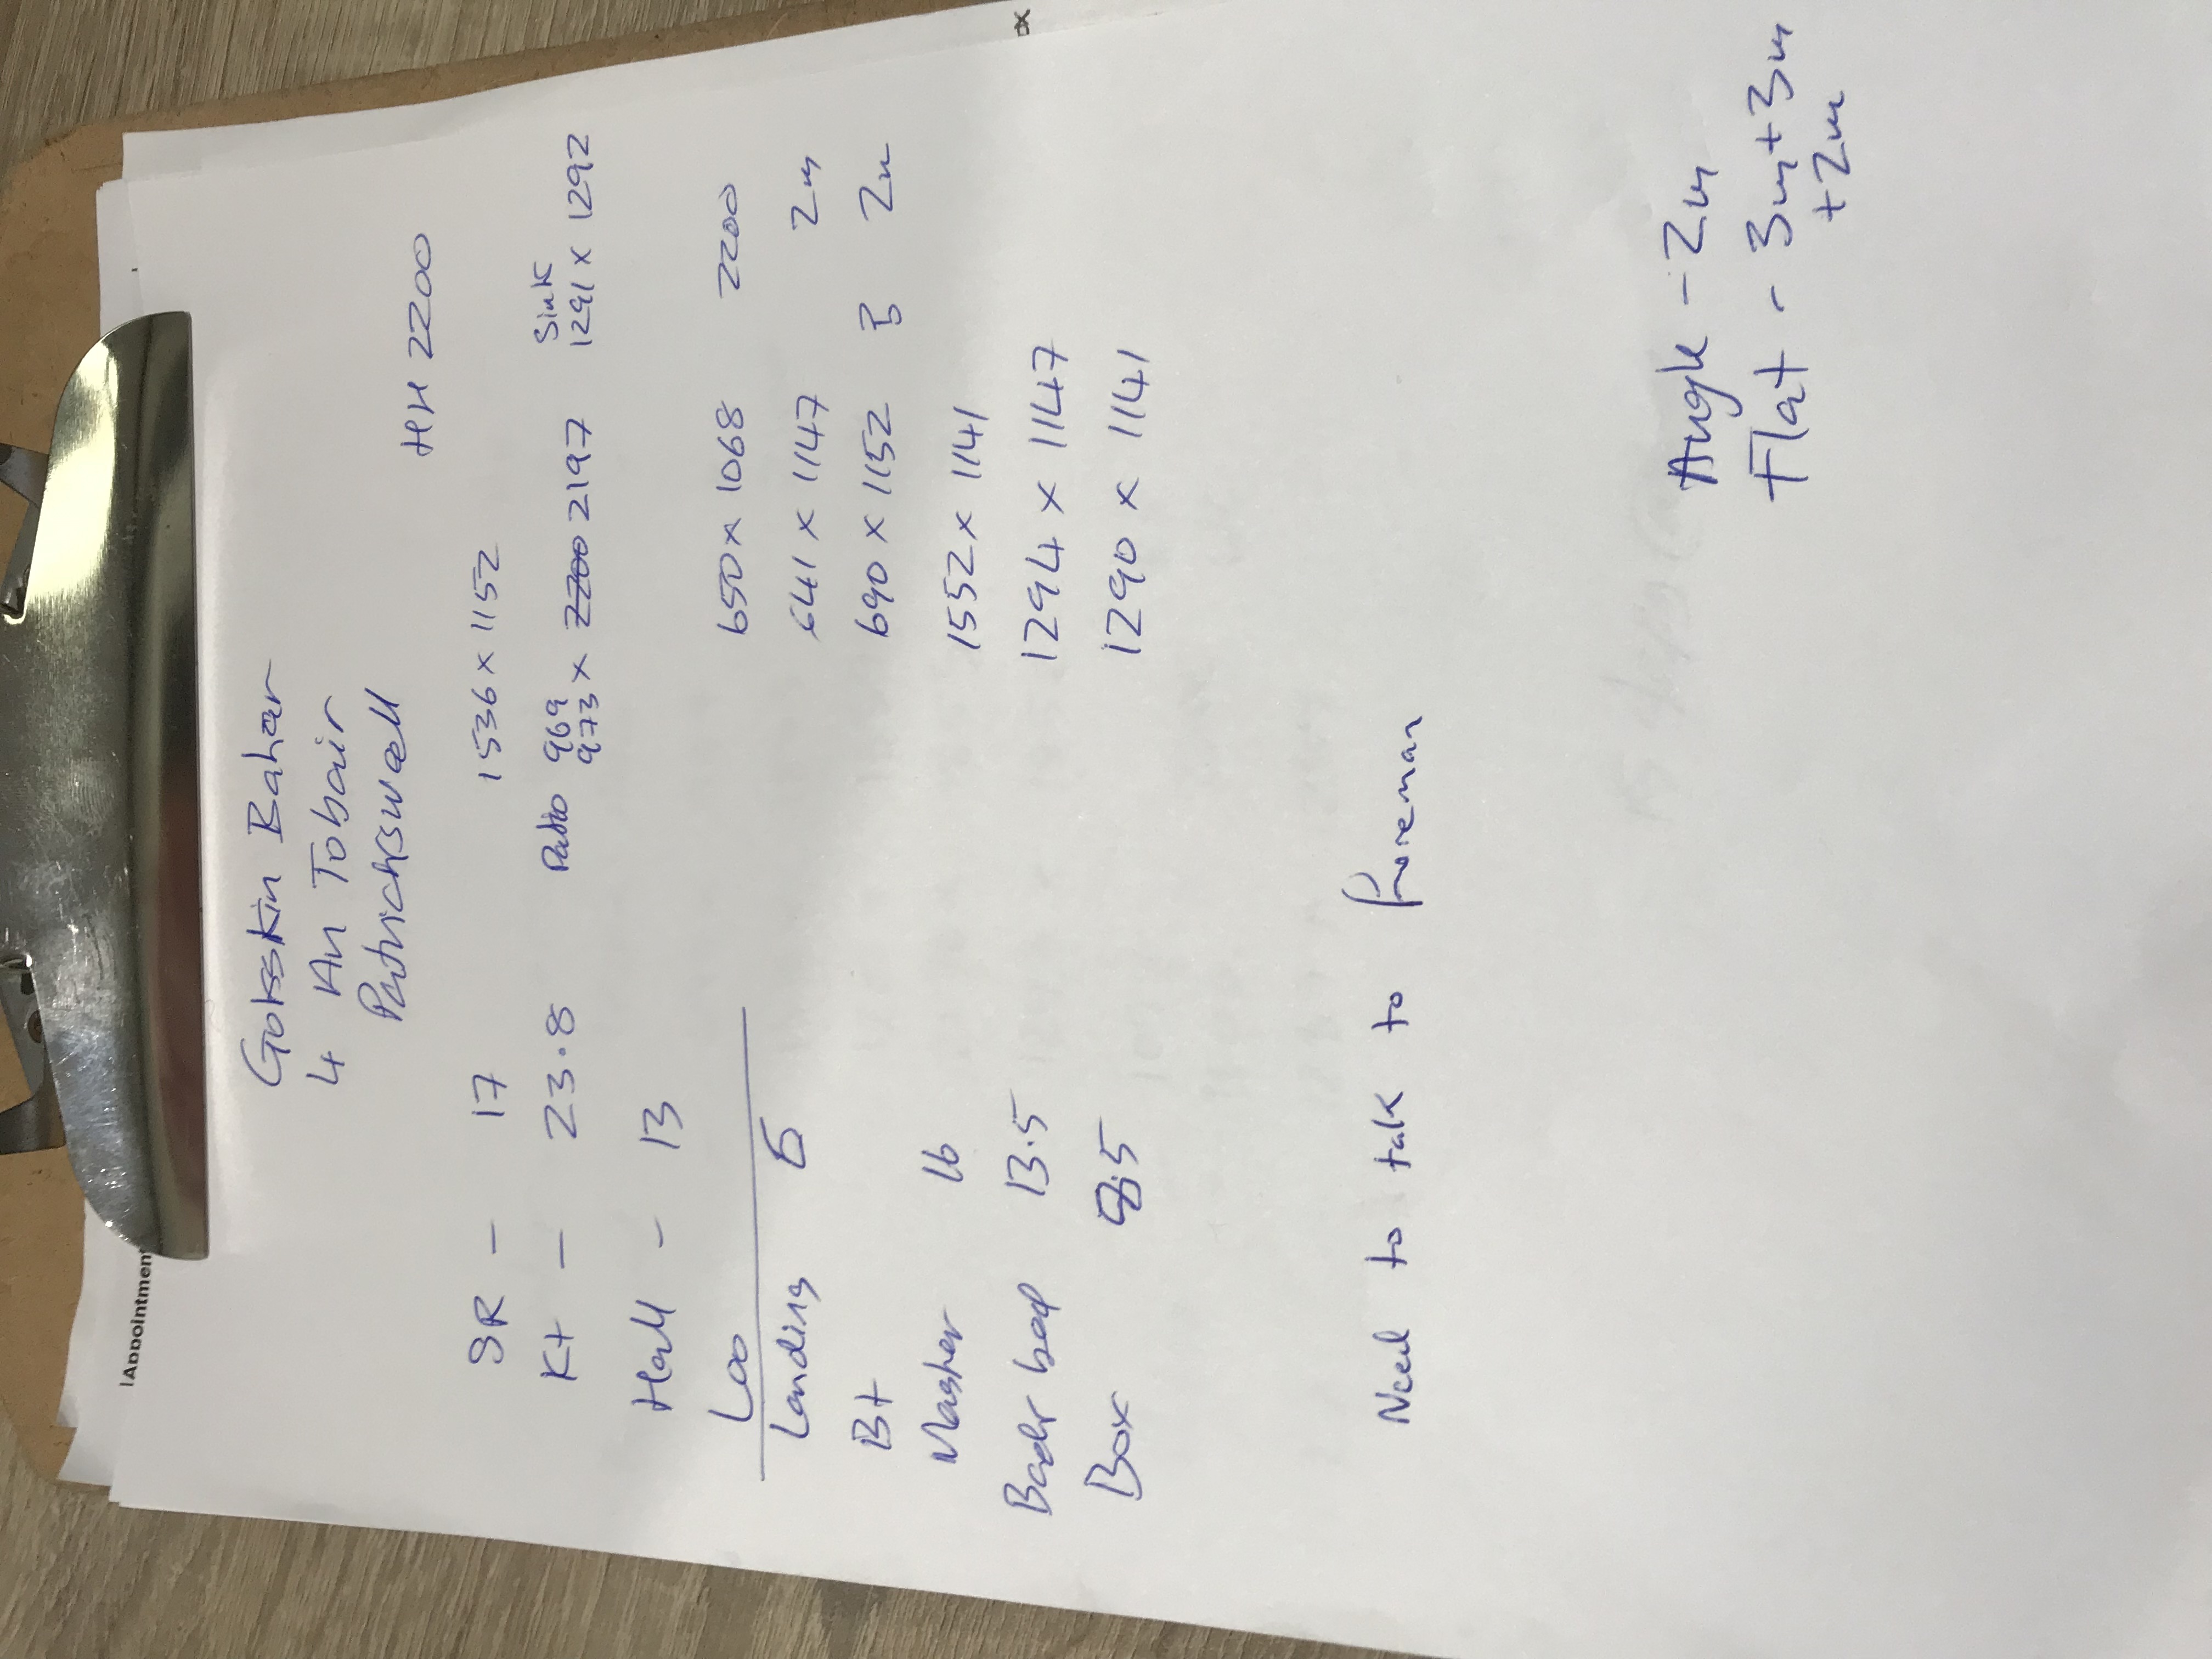 Gokskin Bahar
4 An Tobair
Patrickswell
HH 2200
SR - 17 1536 x 1152
Kt - 23.8 Patio 969 973 x 2200 2197 Sink 1291 x 1292
Hall - 13
Loo 650 x 1068 2200
Landing 6 641 x 1147 2m
Bt 690 x 1152 B 2m
Master 16 1552 x 1141
Back bed 13.5 1294 x 1147
Box 8.5 1290 x 1141
Need to talk to foreman
Angle - 2m
Flat - 3m + 3m
+ 2m
Appointmen
ox